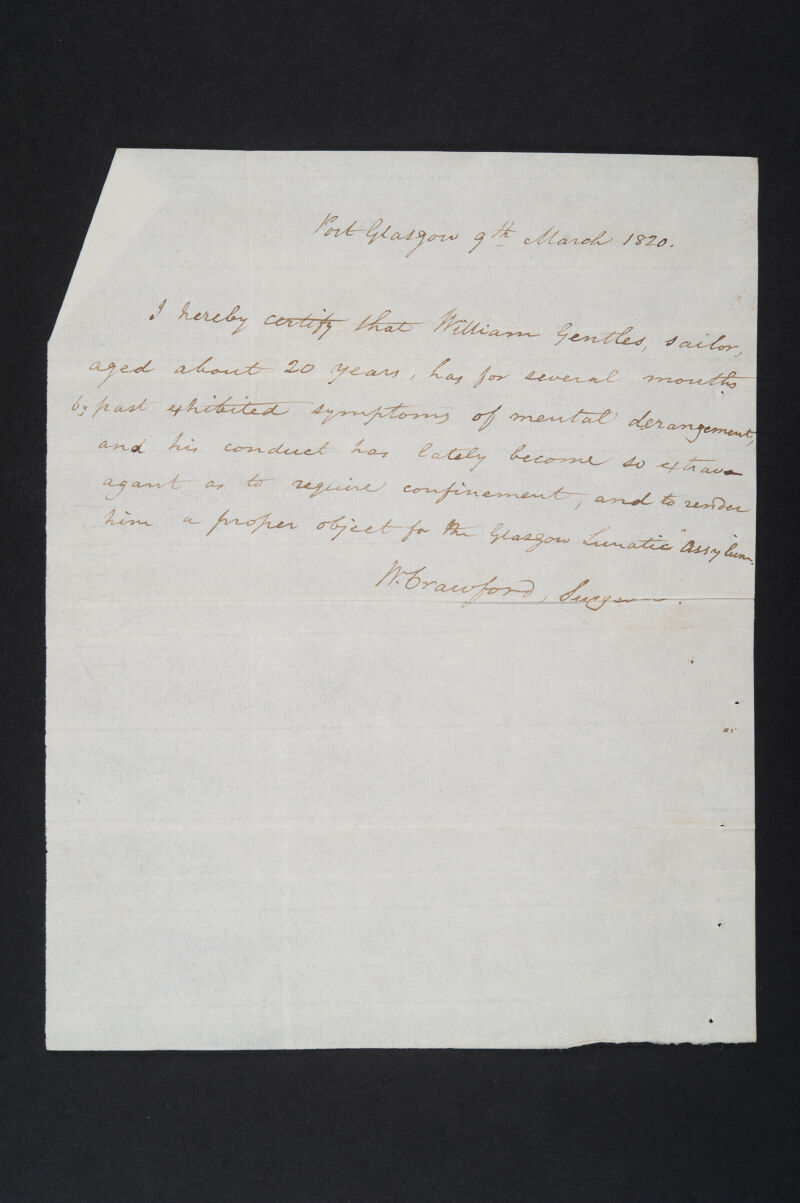 Port Glasgow 9th March 1820.
I hereby certify that William Gentles, sailor,
aged about 20 years, has for several months
by past exhibited symptoms of mental derangement,
and his conduct has lately become so extrav-
agant as to require confinement, and to render
him a proper object for the Glasgow Lunatic Assylum.
W. Crawford, Surgeon.